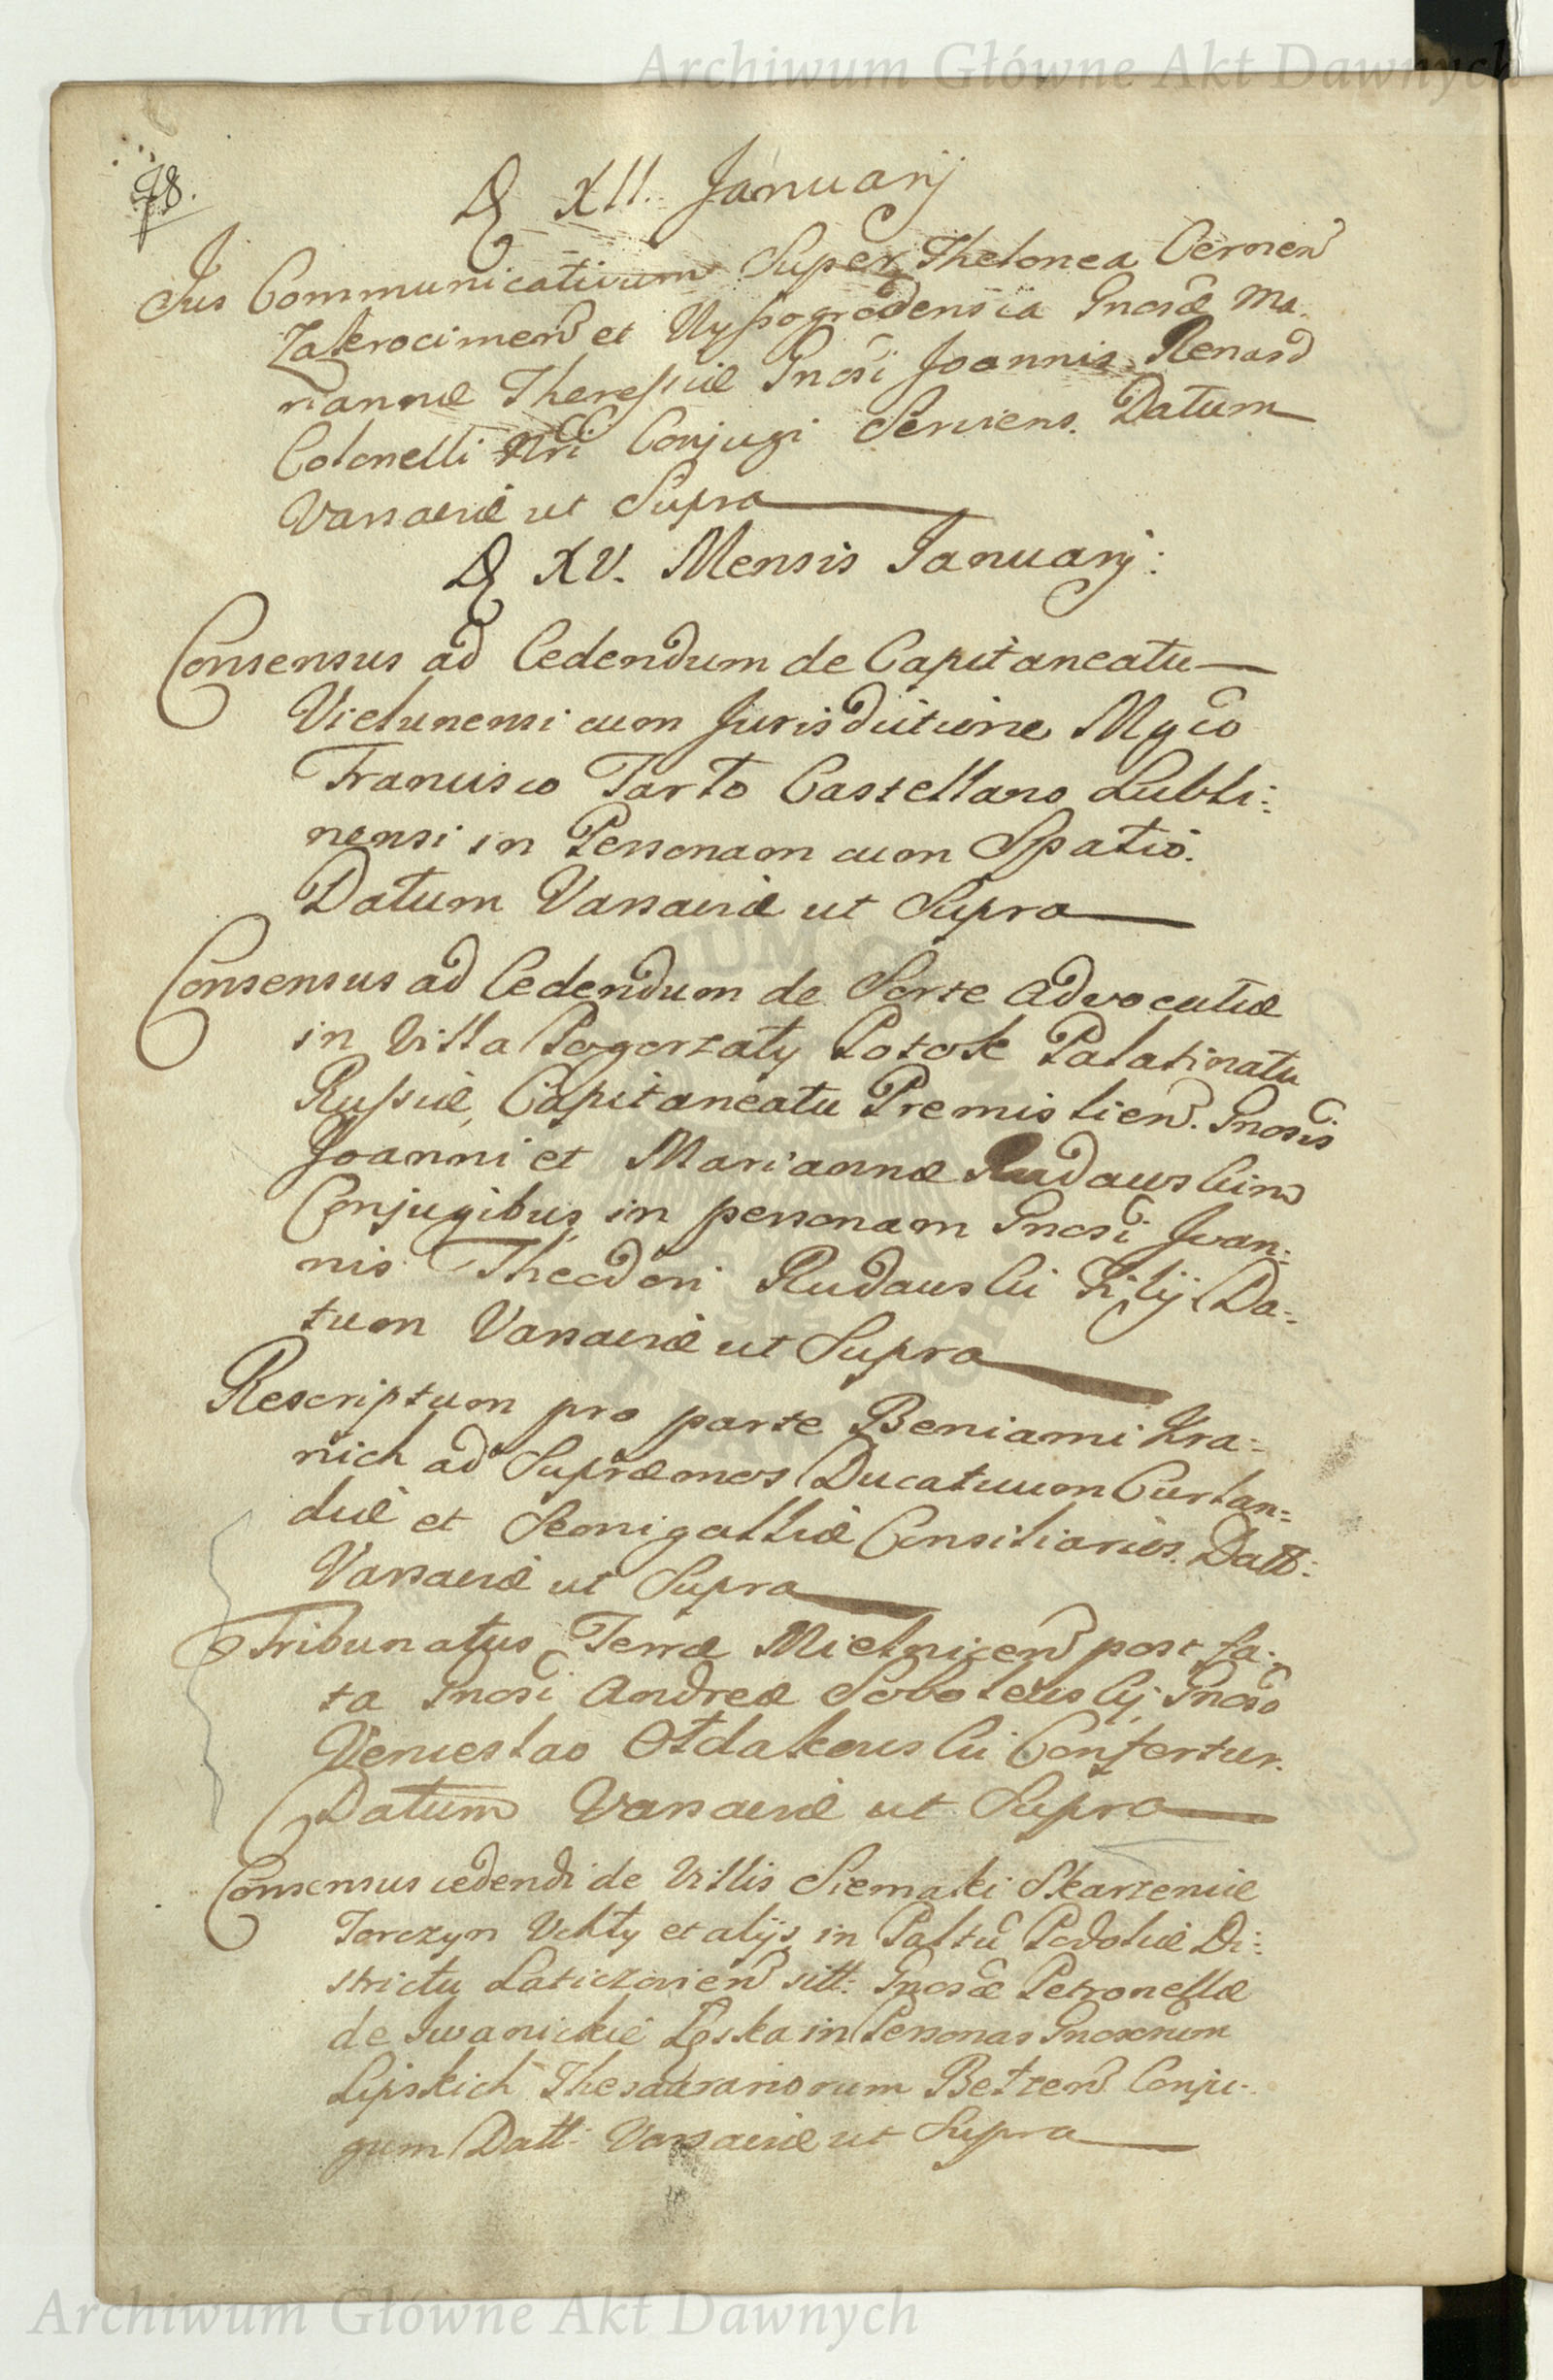 Archiwum Główne Akt Dawnych
78.
D XII. Januarij
Jus Communicativum Super Thelonea Cernen
Zakrocimen et Wyszogrodensia Gnosæ Ma-
riannæ Theressiæ Gnosi Joannis Renard
Colonelli Nri Conjugi Serviens. Datum
Varsaviæ ut Supra
D XV. Mensis Januarij:
Consensus ad Cedendum de Capitaneatu
Vielunensi cum Jurisdictione Mgco
Francisco Tarło Castellano Lubli:
nensi in Personam cum Spatio.
Datum Varsaviæ ut Supra
Consensus ad Cedendum de Sorte Advocatiæ
in Villa Pogorzały Potok Palatinatu
Russiæ, Capitaneatu Premislien. Gnosis
Joanni et Mariannæ Rudawskim
Conjugibus in personam Gnosi Joan:
nis Theodori Rudawski Filij Da:
tum Varsaviæ ut Supra
Rescriptum pro parte Beniami Kra:
nich ad Supræmos Ducatuum Curlan:
diæ et Semigalliæ Consiliarios. Datt:
Varsaviæ ut Supra
Tribunatus Terræ Mielnicen post fa:
ta Gnosi Andreæ Sobolewskij Gnoso
Venceslao Ołdakowski Confertur.
Datum Varsaviæ ut Supra
Consensus cedendi de Villis Siemaki Skarzenice
Torczyn Vchły et alijs in Paltu Podoliæ Di:
strictu Laticzovien sitt: Gnosæ Petronellæ
de Iwanickie Łoska in Personas Gnosorum
Lipskich Thesaurariorum Betzen Conju-
gum Datt: Varsaviæ ut Supra
Archiwum Główne Akt Dawnych